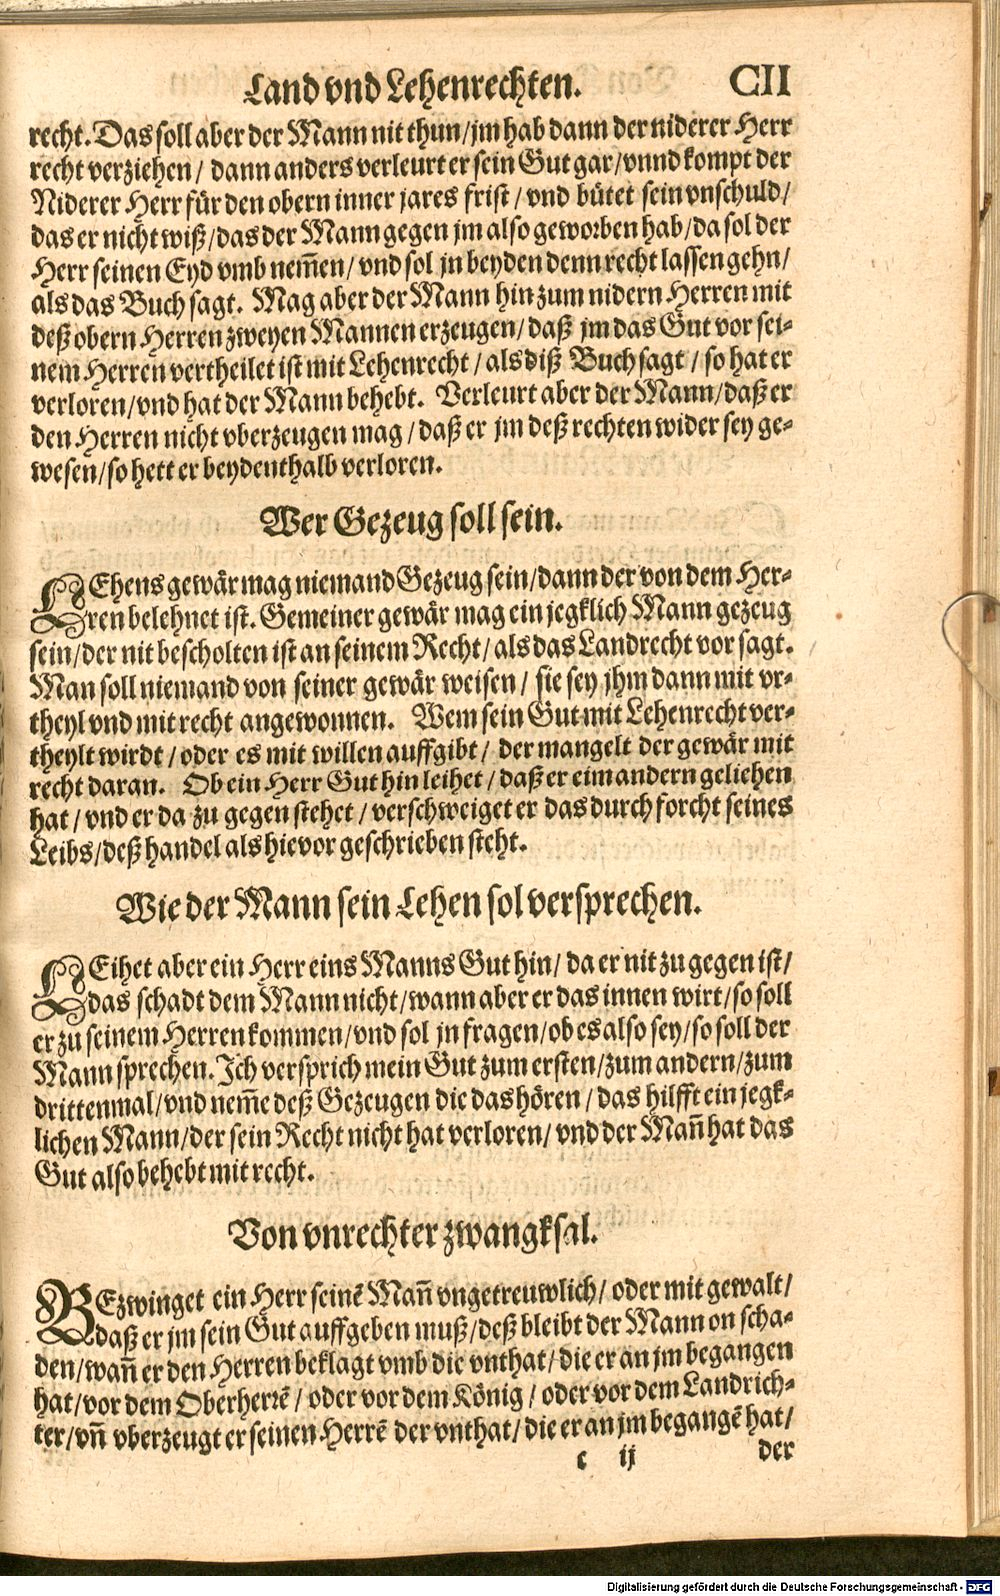 Land vnd Lehenrechten. CII
recht. Das soll aber der Mann nit thun/ jm hab dann der niderer Herr
recht verziehen/ dann anders verleurt er sein Gut gar/ vnnd kompt der
Niderer Herr für den obern inner jares frist/ vnd bütet sein vnschuld/
das er nicht wiß/ das der Mann gegen jm also geworben hab/ da sol der
Herr seinen Eyd vmb nem̃en/ vnd sol jn beyden denn recht lassen gehn/
als das Buch sagt. Mag aber der Mann hin zum nidern Herren mit
deß obern Herren zweyen Mannen erzeugen/ daß jm das Gut vor sei-
nem Herren vertheilet ist mit Lehenrecht/ als diß Buch sagt/ so hat er
verloren/ vnd hat der Mann behebt. Verleurt aber der Mann/ daß er
den Herren nicht vberzeugen mag/ daß er jm deß rechten wider sey ge-
wesen/ so hett er beydenthalb verloren.
Wer Gezeug soll sein.
LEhens gewär mag niemand Gezeug sein/ dann der von dem Her-
ren belehnet ist. Gemeiner gewär mag ein jegklich Mann gezeug
sein/ der nit bescholten ist an seinem Recht/ als das Landrecht vor sagt.
Man soll niemand von seiner gewär weisen/ sie sey jhm dann mit vr-
theyl vnd mit recht angewonnen. Wem sein Gut mit Lehenrecht ver-
theylt wirdt/ oder es mit willen auffgibt/ der mangelt der gewär mit
recht daran. Ob ein Herr Gut hin leihet/ daß er eim andern geliehen
hat/ vnd er da zu gegen stehet/ verschweiget er das durch forcht seines
Leibs/ deß handel als hievor geschrieben steht.
Wie der Mann sein Lehen sol versprechen.
LEihet aber ein Herr eins Manns Gut hin/ da er nit zu gegen ist/
das schadt dem Mann nicht/ wann aber er das innen wirt/ so soll
er zu seinem Herren kommen/ vnd sol jn fragen/ ob es also sey/ so soll der
Mann sprechen. Ich versprich mein Gut zum ersten/ zum andern/ zum
drittenmal/ vnd nem̃e deß Gezeugen die das hören/ das hilfft ein jegk-
lichen Mann/ der sein Recht nicht hat verloren/ vnd der Mañ hat das
Gut also behebt mit recht.
Von vnrechter zwangksal.
BEzwinget ein Herr seinē Mañ vngetreuwlich/ oder mit gewalt/
daß er jm sein Gut auffgeben muß/ deß bleibt der Mann on scha-
den/ wañ er den Herren beklagt vmb die vnthat/ die er an jm begangen
hat/ vor dem Oberherrē/ oder vor dem König/ oder vor dem Landrich-
ter/ vñ vberzeugt er seinen Herrē der vnthat/ die er an jm begangē hat/
c ij der
Digitalisierung gefördert durch die Deutsche Forschungsgemeinschaft - DFG